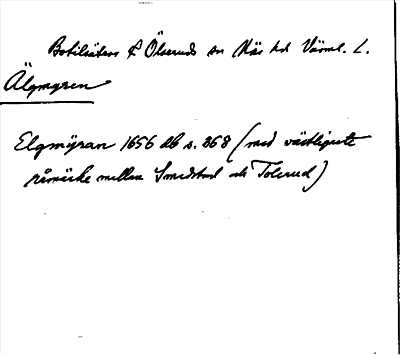 Botilsäters & Ölseruds sn Näs hd Värml. l.
Älgmyren
Elgmÿran 1656 db s. 868 (med västligaste
råmärke mellan Smedstad och Tolerud)